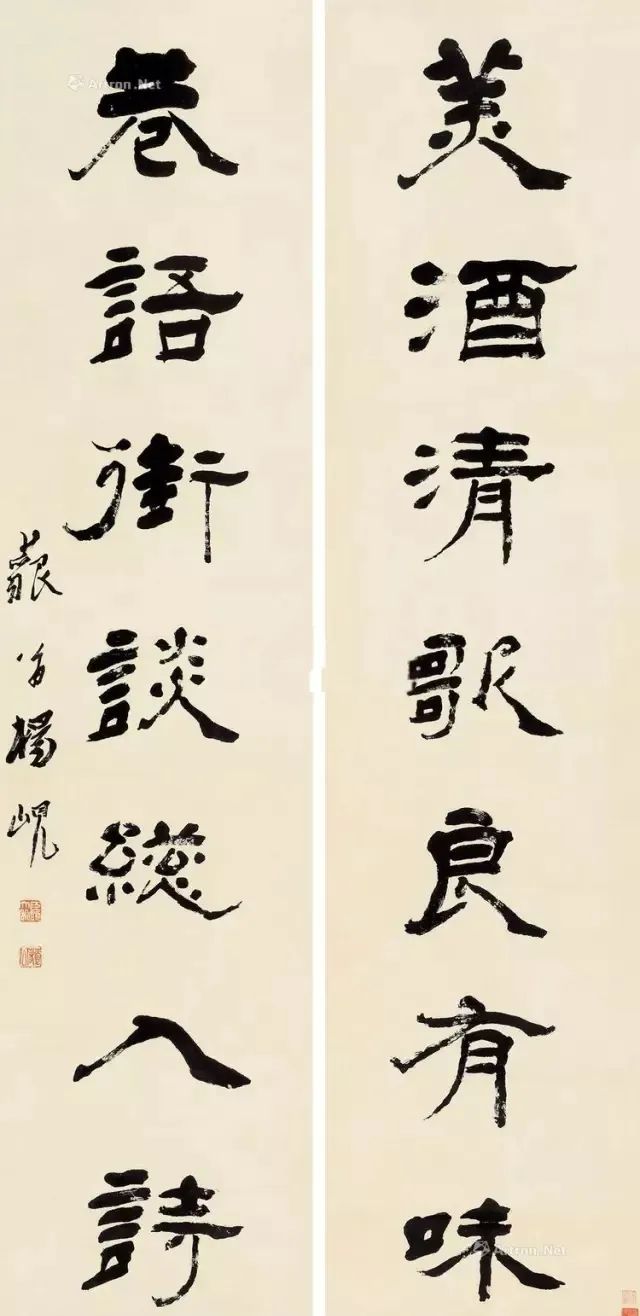 美酒清歌良有味
巷語街談總入詩
藐翁楊峴
Artron.Net
Artron.Net